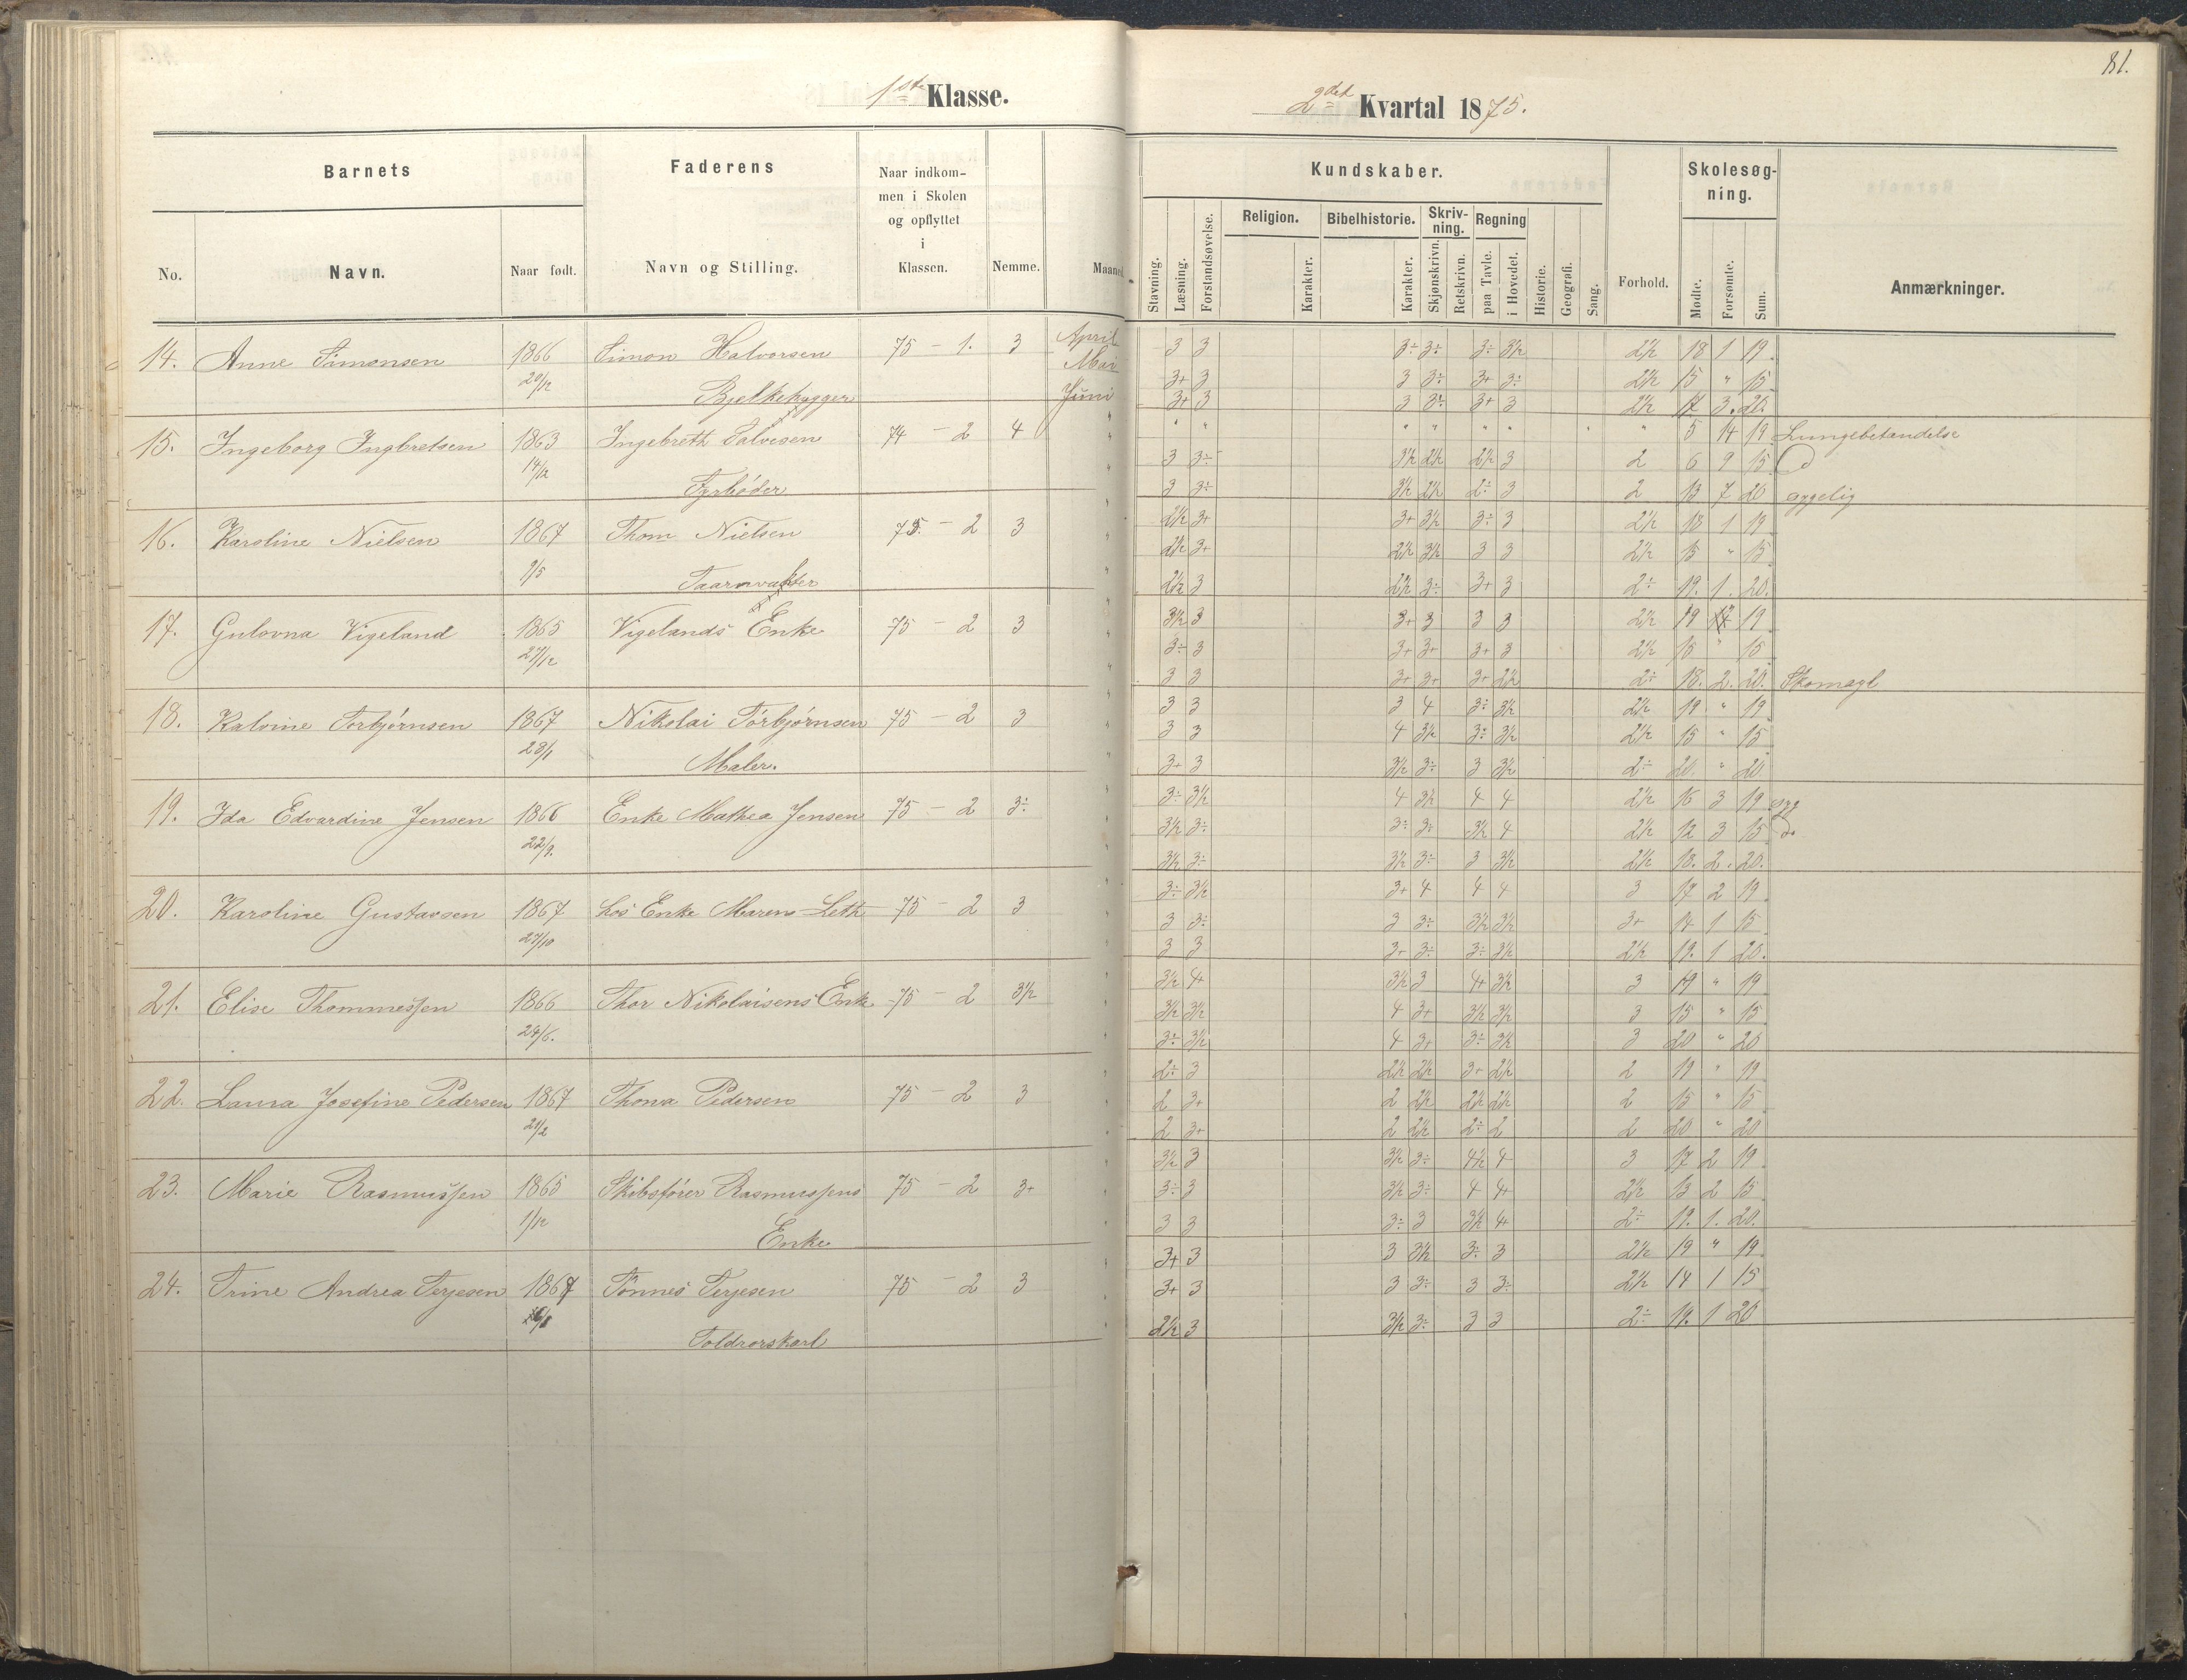 1ste Klasse.
Barnets
Faderens
Naar indkommen i Skolen og opflyttet i Klassen.
No.
Navn.
Naar født.
Navn og Stilling.
Nemme.
Maaned
14. Anne Simonsen 1866 Simon Halvorsen 75 - 1. 3 April
20/12 Bjelkehugger Mai
Juni
15. Ingeborg Ingbretsen 1863 Ingebreth Salvesen 74 - 2 4
14/12 Fyrbøder
16. Karoline Nielsen 1867 Thom Nielsen 75 - 2 3
9/5 Taarnvakter
17. Gulovna Vigeland 1865 Vigelands Enke 75 - 2 3
27/12
18. Kalvine Torbjørnsen 1867 Nikolai Torbjørnsen 75 - 2 3
28/1 Maler.
19. Ida Edvardine Jensen 1866 Enke Mathea Jensen 75 - 2 3÷
22/9.
20. Karoline Gustavsen 1867 hos Enke Maren Leth 75 - 2 3
27/10
21. Elise Thommessen 1866 Thor Nikolaisens Enke 75 - 2 3½
24/6.
22. Laura Josefine Pedersen 1867 Thona Pedersen 75 - 2 3
21/2
23. Marie Rasmussen 1865 Skibsfører Rasmussens 75 - 2 3+
1/12 Enke
24. Trine Andrea Terjesen 1867 Tønnes Terjesen 75 - 2 3
Toldrorskarl
81.
2det Kvartal 1875.
Kundskaber.
Skolesøgning.
Stavning.
Læsning.
Forstandsøvelse.
Religion.
Karakter.
Bibelhistorie.
Karakter.
Skrivning.
Skjønskrivn.
Retskrivn.
Regning
paa Tavle.
i Hovedet.
Historie.
Geografi.
Sang.
Forhold.
Mødte.
Forsømte.
Sum.
Anmærkninger.
3 3 3÷ 3÷ 3÷ 3½ 2½ 18 1 19
3+ 3 3 3÷ 3+ 3÷ 2½ 15 " 15
3+ 3 3 3÷ 3+ 3 2½ 17 3. 20.
" " " " " " " " 5 14 19 Lungebetændelse
3 3÷ 3½ 2½ 2½ 3 2 6 9 15
3 3÷ 3½ 2½ 2÷ 3 2 13 7 20 sygelig
2½ 3+ 3+ 3½ 3÷ 3 2½ 18 1 19
2½ 3+ 2½ 3½ 3 3 2½ 15 " 15
2½ 3 2½ 3÷ 3+ 3 2÷ 19. 1. 20.
3½ 3 3+ 3 3 3 2½ 19 19
3÷ 3 3+ 3+ 3+ 3 2½ 15 " 15
3 3 3+ 3+ 3+ 2½ 2÷ 18. 2. 20. Skomagl
3 3 3 4 3÷ 3½ 2½ 19 " 19
3 3 4 3½ 3÷ 3½ 2½ 15 " 15
3+ 3 3½ 3÷ 3 3½ 2÷ 20. " 20
3÷ 3½ 4 3½ 4 4 2½ 16 3 19 syg
3½ 3÷ 3÷ 3÷ 3½ 4 2½ 12 3 15 do
3½ 3÷ 3½ 3÷ 3 3½ 2½ 18. 2. 20.
3÷ 3½ 3+ 4 4 4 3 17 2 19
3 3÷ 3 3÷ 3½ 3½ 3+ 14 1 15
3 3 3+ 3÷ 3÷ 3½ 2½ 19. 1 20.
3½ 4+ 3½ 3 4+ 3½ 3 19 " 19
3½ 3½ 4 3+ 3½ 3½ 3 15 " 15
3÷ 3½ 4 3+ 3÷ 3½ 3 20 " 20
2÷ 3 2½ 2½ 3+ 2½ 2 19 " 19
2 3+ 2 2½ 2½ 2½ 2 15 " 15
2 3+ 2 2½ 2÷ 2 2 20 " 20
3½ 3 3½ 3÷ 4½ 4 3 17 2 19
3÷ 3 3½ 3÷ 4 4+ 2½ 13 2 15
3 3 3÷ 3 3½ 4+ 2÷ 19. 1. 20.
3+ 3 3 3½ 3÷ 3 2½ 19 " 19
3+ 3 3 3÷ 3 3÷ 2½ 14 1 15
2½ 3 3½ 3÷ 3 3 2÷ 19. 1 20